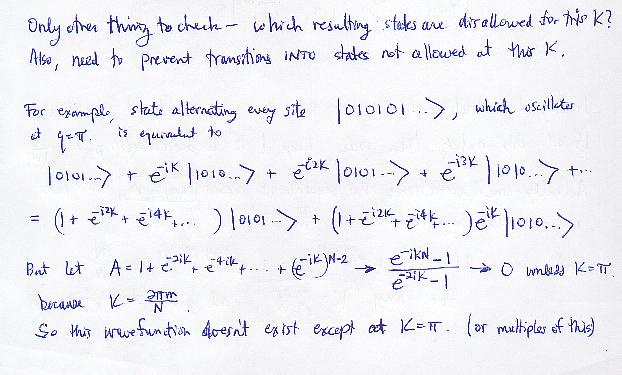 Only other thing to check – which resulting states are disallowed for this K?
Also, need to prevent transitions INTO states not allowed at this K.
For example, state alternating every site |010101...>, which oscillates
at q=π. is equivalent to
|0101...> + e^{-iK} |1010...> + e^{-i2K} |0101...> + e^{-i3K} |1010...> + ...
= (1 + e^{-i2K} + e^{-i4K} + ...) |0101...> + (1 + e^{-i2K} + e^{-i4K} ...) e^{-iK} |1010...>
But let A = 1 + e^{-2iK} + e^{-4iK} + ... + (e^{-iK})^{N-2} → \frac{e^{-iKN} - 1}{e^{-2iK} - 1} → 0 unless K=π.
because K = \frac{2πm}{N}.
So this wavefunction doesn't exist except at K=π. (or multiples of this)